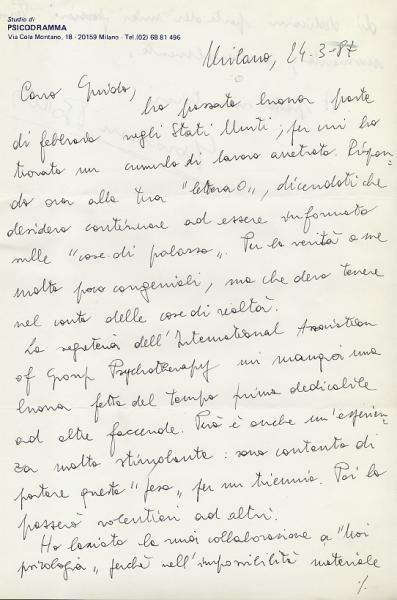 Studio di
PSICODRAMMA
Via Cola Montano, 18 - 20159 Milano - Tel. (02) 68 81 496
Milano, 24-3-87
Caro Guido,
ho passato buona parte
di febbraio negli Stati Uniti; per cui ho
trovato un cumulo di lavoro arretrato. Rispon=
do ora alla tua "lettera O", dicendoti che
desidero continuare ad essere informato
sulle "cose di palazzo". Per la verità a me
molto poco congeniali, ma che devo tenere
nel conto delle cose di realtà.
La segreteria dell'International Association
of Group Psychotherapy mi mangia una
buona fetta del tempo prima dedicabile
ad altre faccende. Però è anche un'esperien=
za molto stimolante: sono contento di
portare questo "peso" per un triennio. Poi lo
passerò volentieri ad altri.
Ho lasciato la mia collaborazione a "
psicologia" perché nell'impossibilità materiale
./.